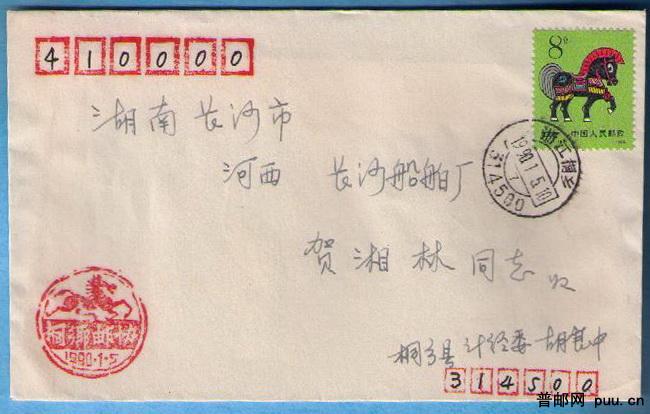 410000
8分
中国人民邮政
湖南长沙市
浙江桐乡
1990.1.5.10
314500
河西 长沙船舶厂
贺湘林同志 收
桐乡邮协
1990·1·5
桐乡县计经委 胡
314500
普邮网 puu.cn